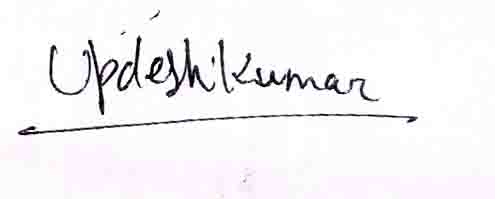 Updesh Kumar